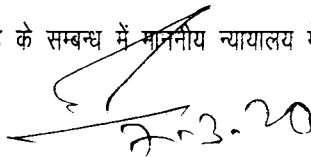 के सम्बन्ध में माननीय न्यायालय
7-3-20